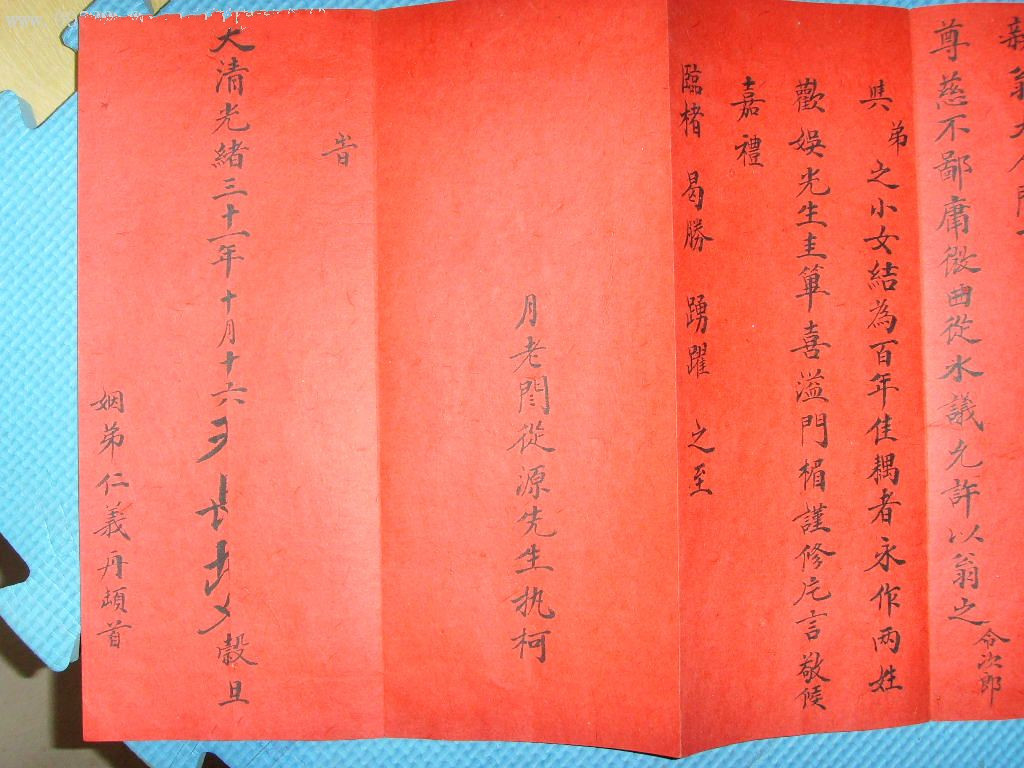 翁大人閣下
尊慈不鄙庸微曲從氷議允許以翁之令次郎
與弟之小女結為百年佳耦者永作兩姓
歡娛光生圭篳喜溢門楣謹修片言敬候
嘉禮
臨楮曷勝 踴躍 之至
月老閆從源先生执柯
旹
大清光緒三十一年十月十六 榖旦
姻弟仁義丹頓首